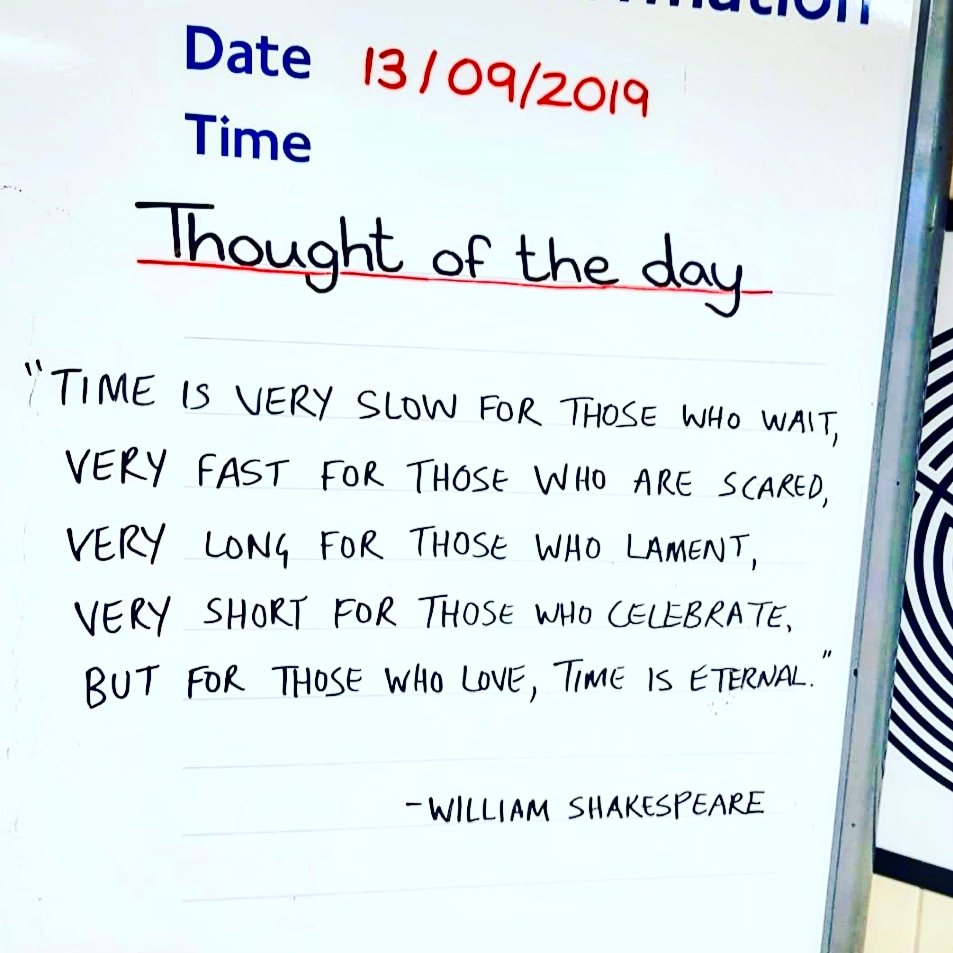 Date 13/09/2019
Time
Thought of the day
"TIME IS VERY SLOW FOR THOSE WHO WAIT,
VERY FAST FOR THOSE WHO ARE SCARED,
VERY LONG FOR THOSE WHO LAMENT,
VERY SHORT FOR THOSE WHO CELEBRATE,
BUT FOR THOSE WHO LOVE, TIME IS ETERNAL."
-WILLIAM SHAKESPEARE